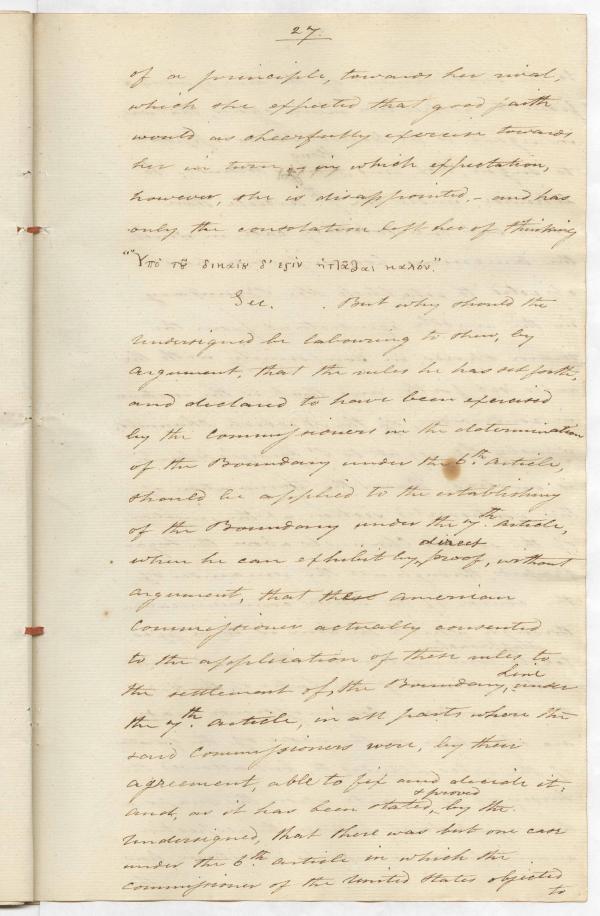 27.
of a principle, towards her rival,
which she expected that good faith
would as cheerfully exercise towards
her in turn, in which expectation,
however, she is disappointed, - and has
only the consolation left her of thinking
"Ὑπὸ τοῦ δικαίου δ' ἐςὶν ἡττᾶσθαι καλόν."
Sec. But why should the
undersigned be labouring to shew, by
argument, that the rules he has set forth,
and declared to have been exercised
by the Commissioners in the determination
of the Boundary under the 6th. article,
should be applied to the establishing
of the Boundary under the 7th. article,
when he can exhibit by direct proof, without
argument, that the American
Commissioner actually consented
to the application of these rules to
the settlement of, the Boundary Line, under
the 7th. article, in all parts where the
said Commissioners were, by their
agreement, able to fix and decide it;
and, as it has been stated, & proved by the
undersigned, that there was but one case
under the 6th. article in which the
Commissioner of the United States objected
to